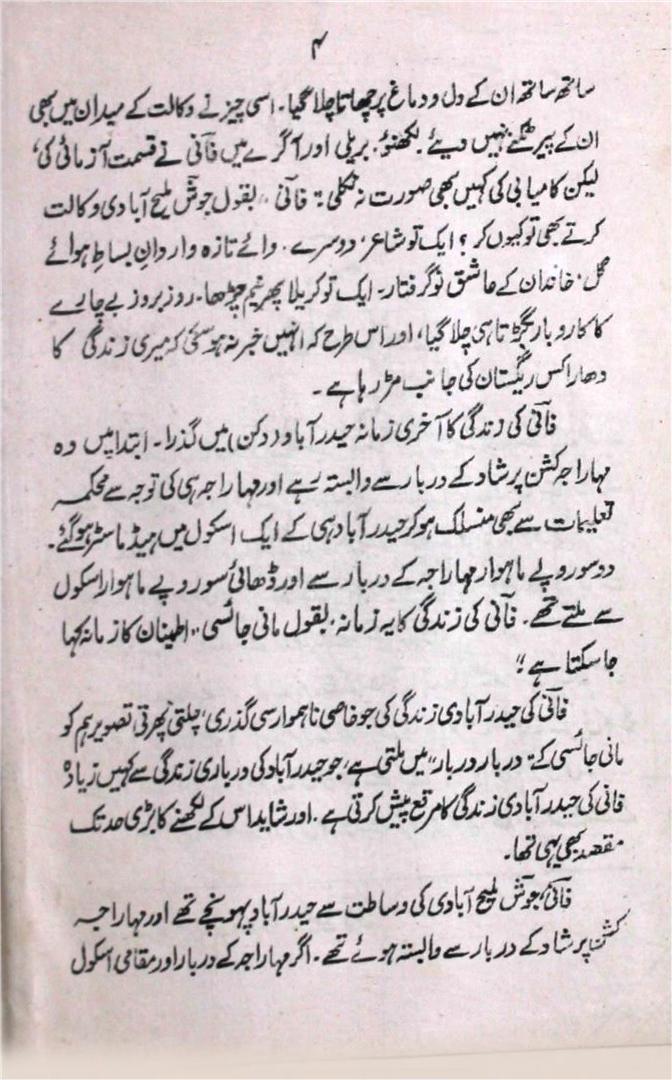 ۴
ساتھ ساتھ ان کے دل و دماغ پر چھاتا چلا گیا۔ اسی چیز نے وکالت کے میدان میں بھی
ان کے پیر ٹکنے نہیں دیئے۔ لکھنؤ، بریلی اور آگرے میں فانی نے قسمت آزمائی کی،
لیکن کامیابی کی کہیں بھی صورت نہ نکلی۔ فانی "بقول جوش ملیح آبادی وکالت
کرتے بھی تو کیوں کر؟ ایک تو شاعر، دوسرے، وائے تازہ واردانِ بساطِ ہوائے
گل، خاندان کے عاشق نو گرفتار۔ ایک تو کریلا پھر نیم چڑھا۔ روز بروز بے چارے
کا کاروبار بگڑتا ہی چلا گیا، اور اس طرح کہ انہیں خبر نہ ہو سکی کہ میری زندگی کا
دھارا کس ریگستان کی جانب مڑ رہا ہے۔
فانی کی زندگی کا آخری زمانہ حیدرآباد (دکن) میں گذرا۔ ابتدا میں وہ
مہاراجہ کشن پرشاد کے دربار سے وابستہ رہے اور مہاراجہ ہی کی توجہ سے محکمہ
تعلیمات سے بھی منسلک ہو کر حیدرآباد ہی کے ایک اسکول میں ہیڈ ماسٹر ہو گئے۔
دو سو روپے ماہوار مہاراجہ کے دربار سے اور ڈھائی سو روپے ماہوار اسکول
سے ملتے تھے۔ فانی کی زندگی کا یہ زمانہ، بقول مانی جائسی "اطمینان کا زمانہ کہا
جا سکتا ہے"
فانی کی حیدرآبادی زندگی کی جو خاصی ناہموار سی گذری، چلتی پھرتی تصویر ہم کو
مانی جائسی کے "دربار دربار" میں ملتی ہے، جو حیدرآباد کی درباری زندگی سے کہیں زیادہ
فانی کی حیدرآبادی زندگی کا مرقع پیش کرتی ہے۔ اور شاید اس کے لکھنے کا بڑی حد تک
مقصد بھی یہی تھا۔
فانی، جوش ملیح آبادی کی وساطت سے حیدرآباد پہونچے تھے اور مہاراجہ
کشن پرشاد کے دربار سے وابستہ ہوئے تھے۔ اگر مہاراجہ کے دربار اور مقامی اسکول